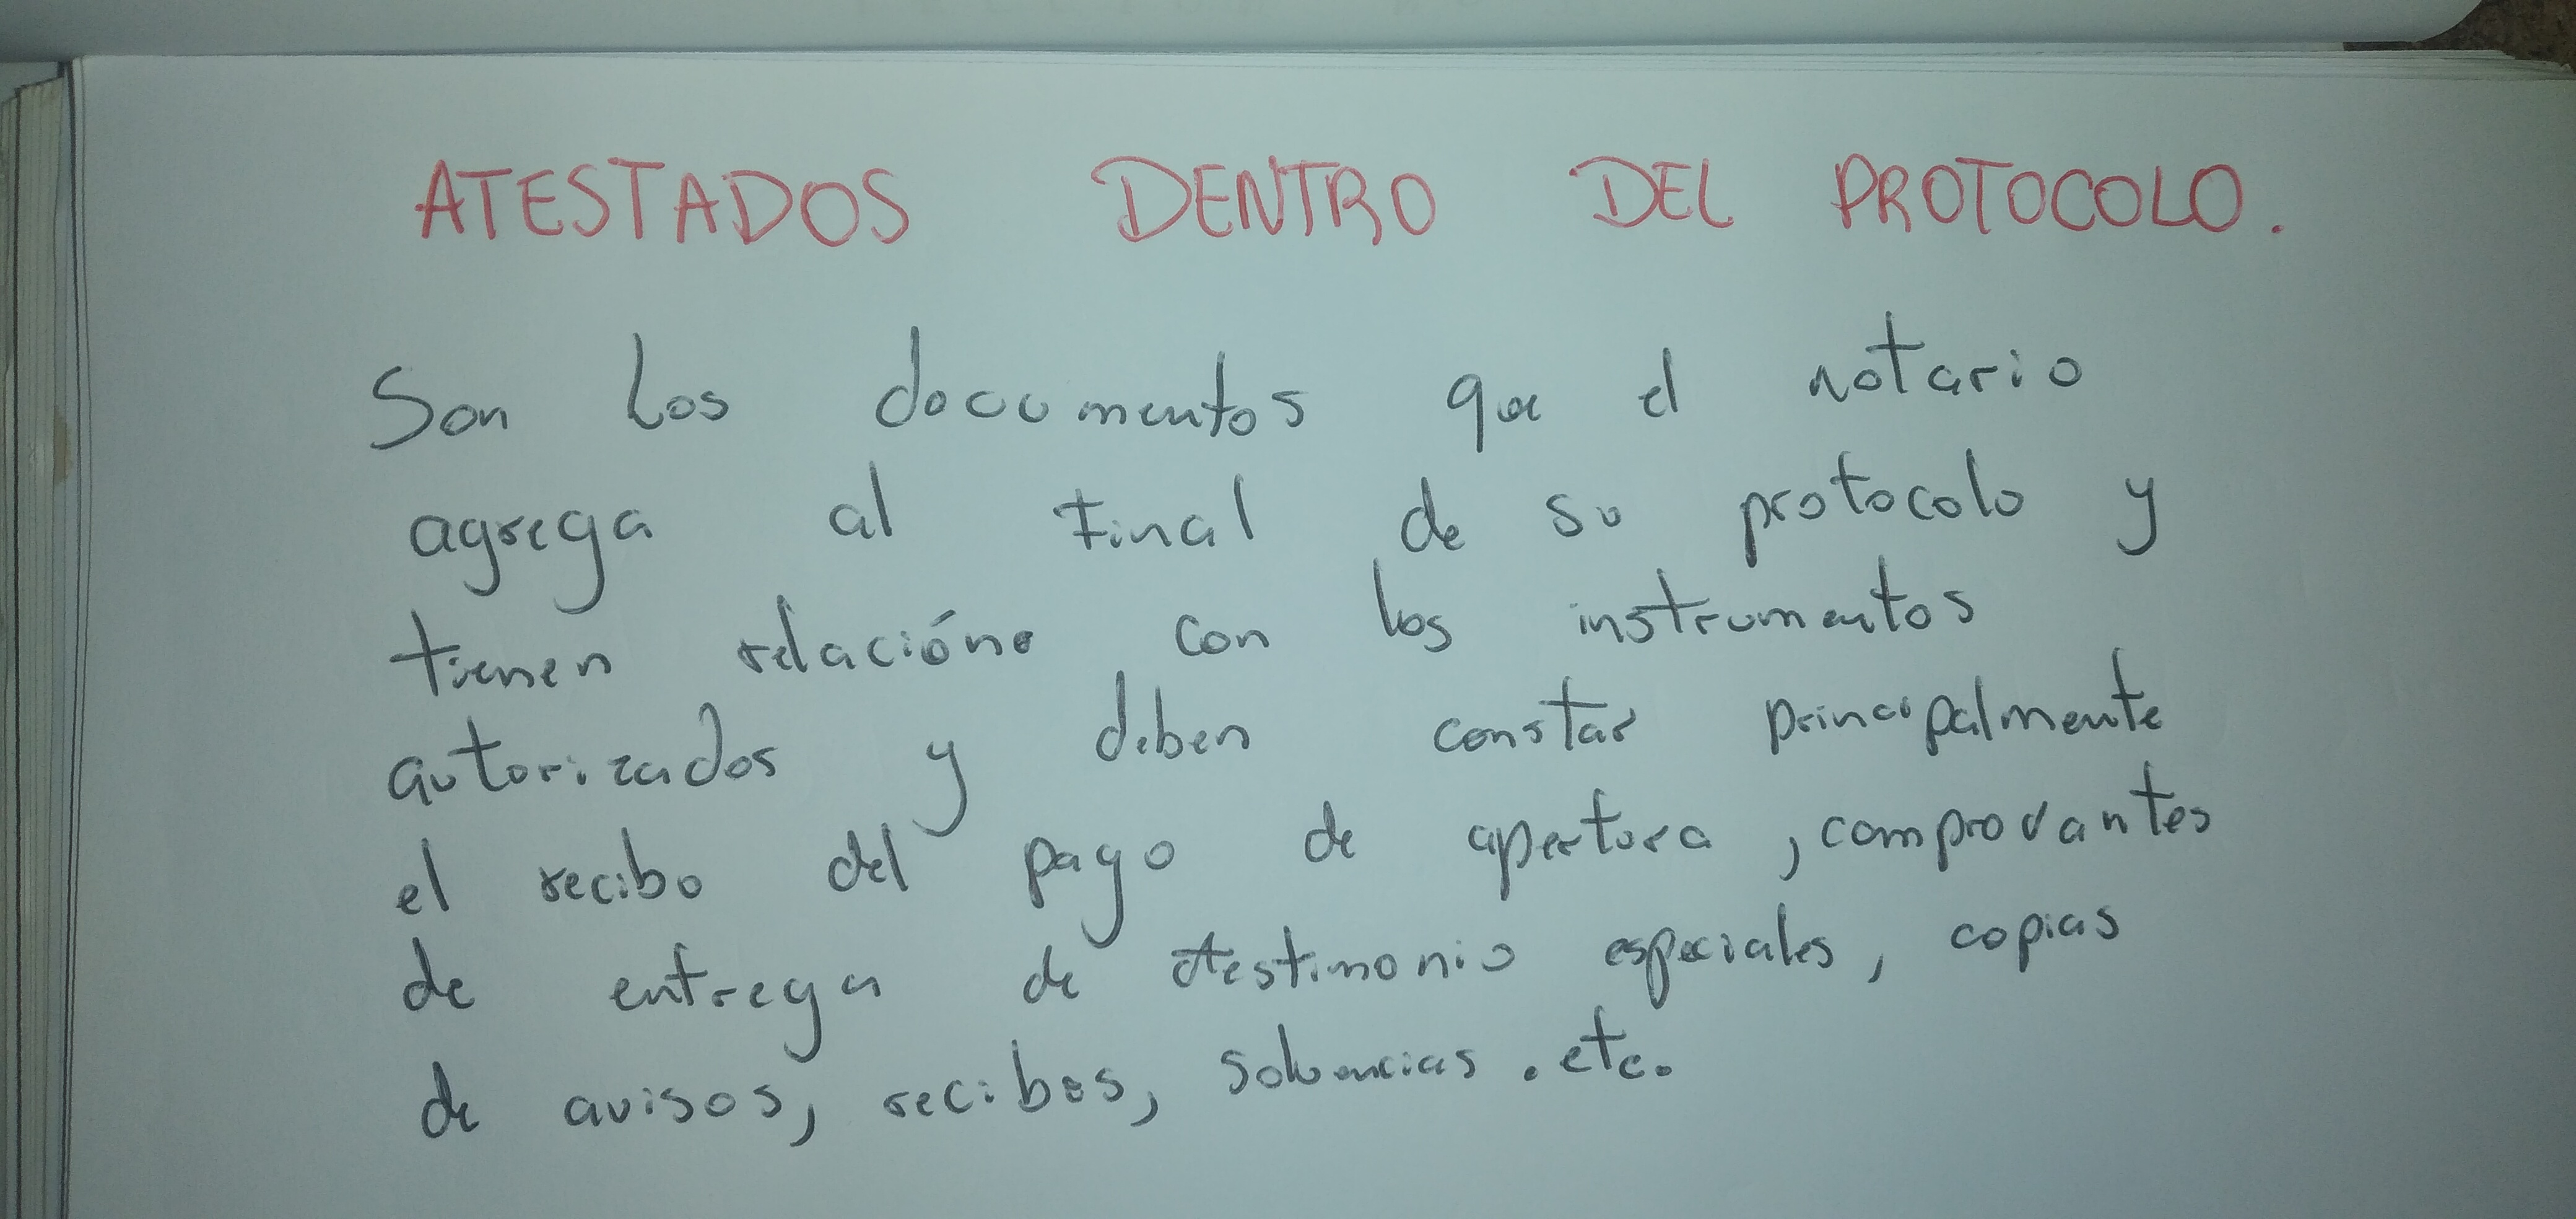 ATESTADOS DENTRO DEL PROTOCOLO.
Son los documentos que el notario
agrega al final de su protocolo y
tienen relacióne con los instrumentos
autorizados y deben constar principalmente
el recibo del pago de apertura, comprovantes
de entrega de testimonio especiales, copias
de avisos, recibos, solvencias. etc.